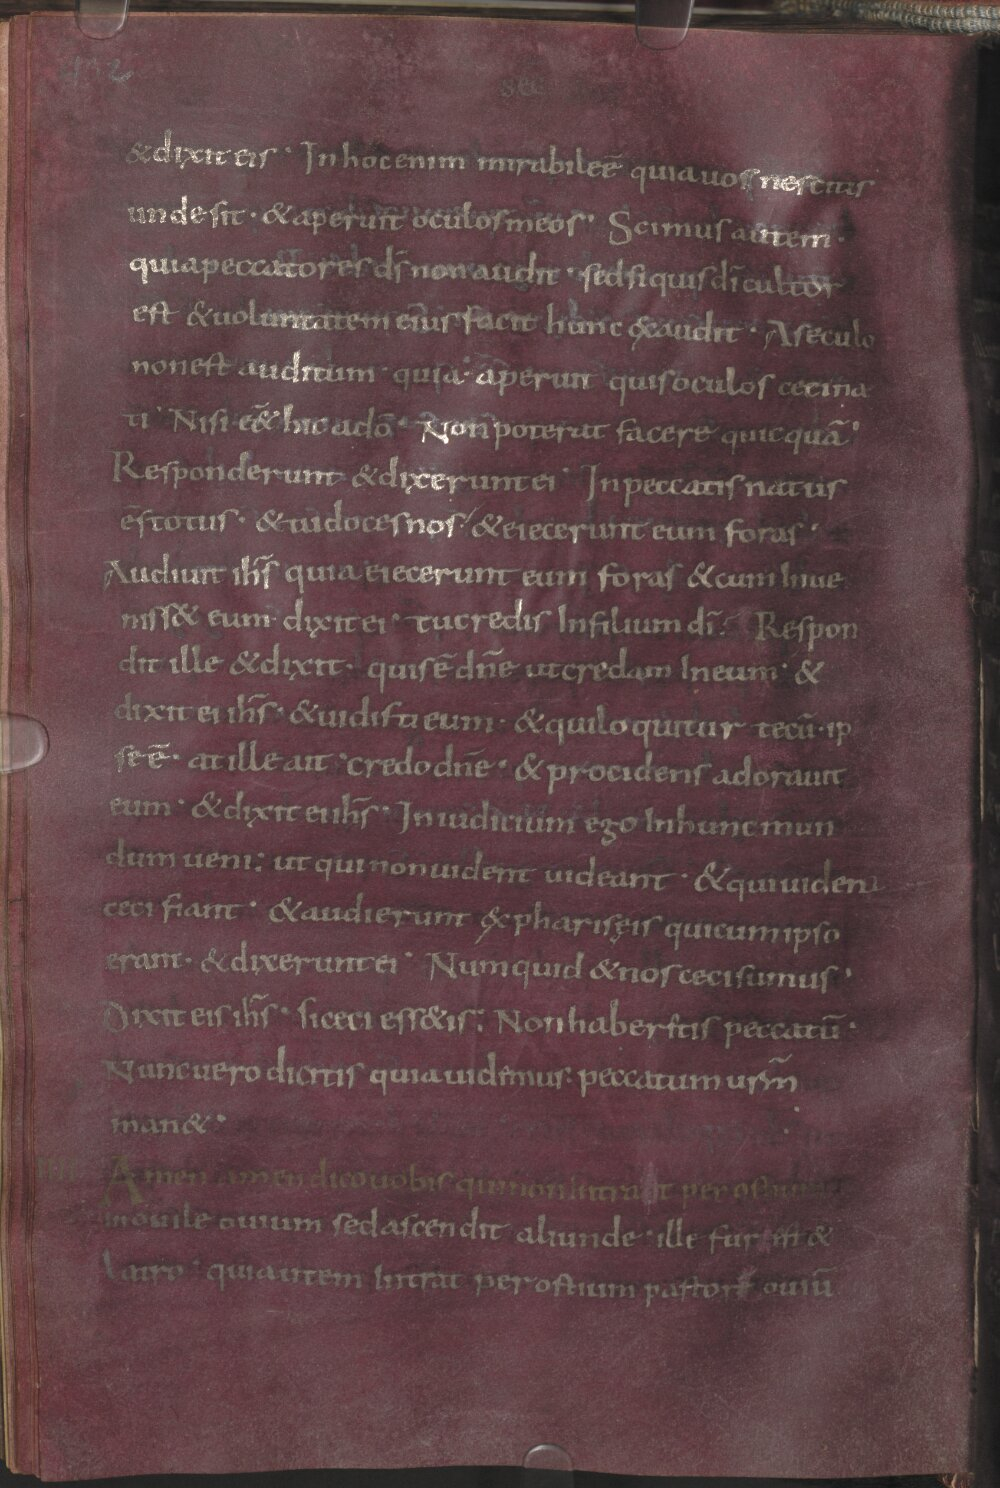 192
sec
&dixit eis · In hoc enim mirabile ē quia uos nescitis
unde sit · & aperuit oculos meos · Scimus autem ·
quia peccatores dš non audit · sed si quis dī cultor
est & uoluntatem eius facit hunc exaudit · A seculo
non est auditum · quia · aperuit quis oculos ceci na
ti · Nisi e&̄ hic a dō · Non poterat facere quicquā ·
Responderunt & dixerunt ei · In peccatis natus
es totus · & tu doces nos · & eiecerunt eum foras ·
Audiuit ihs̄ quia eiecerunt eum foras & cum inue
niss& eum · dixit ei · tu credis in filium dī · Respon
dit ille & dixit · quis ē dn̄e ut credam in eum · &
dixit ei ihs̄ · & uidisti eum · & qui loquitur tecū · ip
se ē · at ille ait · credo dn̄e · & procidens adorauit
eum · & dixit ei ihs̄ · In iudicium ego in hunc mun
dum ueni : ut qui non uident uideant · & qui uident
ceci fiant · & audierunt ex phariseis qui cum ipso
erant · & dixerunt ei · Numquid & nos ceci sumus ·
Dixit eis ihs̄ · si ceci ess&is : Non haberetis peccatū ·
Nunc uero dicitis quia uidemus · peccatum urm̄
man& ·
Amen amen dico uobis qui non intrat per ostium
in ouile ouium sed ascendit aliunde · ille fur est &
latro · qui autem intrat per ostium pastor ē ouiū